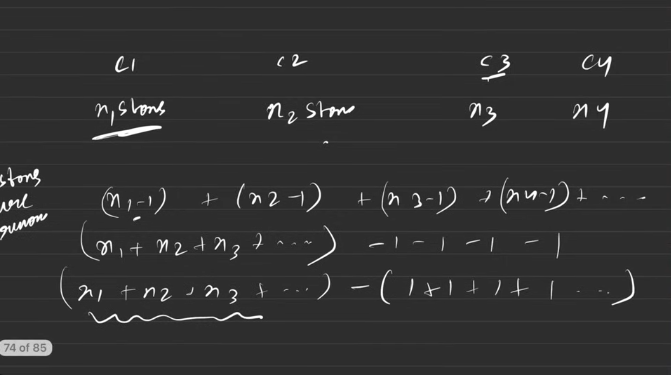 C1 C2 C3 C4
n1 stons n2 stons n3 n4
stons
(n1-1) + (n2-1) + (n3-1) + (n4-1) + ....
(n1 + n2 + n3 + ....) -1 -1 -1 -1
(n1 + n2 + n3 + ...) - (1+1+1+1 ...)
74 of 85